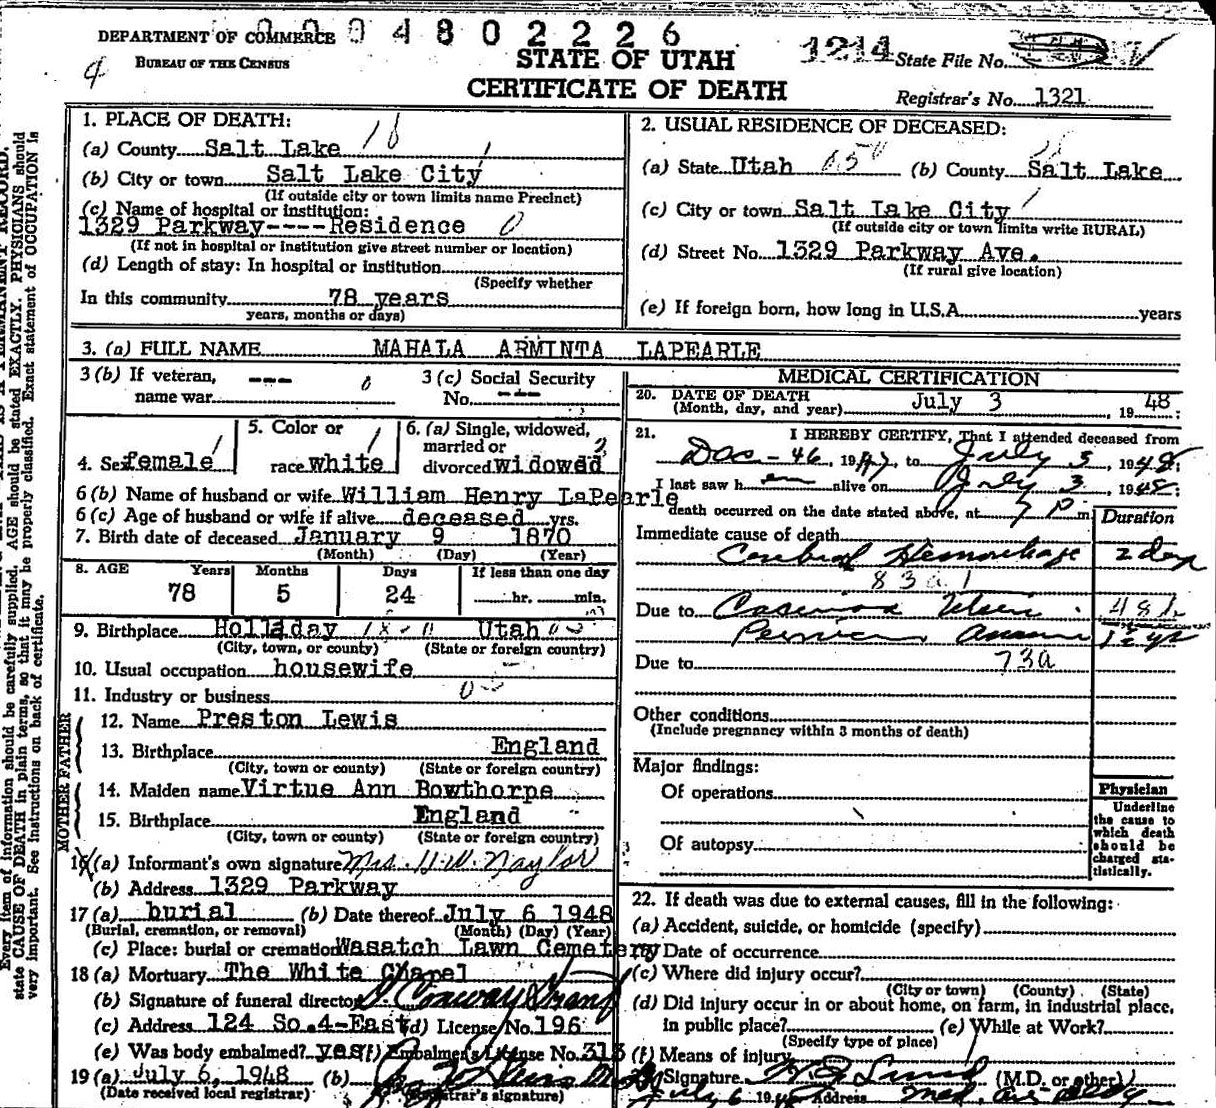 0004802226
DEPARTMENT OF COMMERCE
BUREAU OF THE CENSUS
STATE OF UTAH
CERTIFICATE OF DEATH
1214 State File No.
Registrar's No. 1321
1. PLACE OF DEATH:
(a) County Salt Lake
(b) City or town Salt Lake City
(If outside city or town limits name Precinct)
(c) Name of hospital or institution:
1329 Parkway----Residence 0
(If not in hospital or institution give street number or location)
(d) Length of stay: In hospital or institution
(Specify whether
In this community 78 years
years, months or days)
2. USUAL RESIDENCE OF DECEASED:
(a) State Utah (b) County Salt Lake
(c) City or town Salt Lake City
(If outside city or town limits write RURAL)
(d) Street No. 1329 Parkway Ave.
(If rural give location)
(e) If foreign born, how long in U.S.A. years
3. (a) FULL NAME MAHALA ARMINTA LAPEARLE
3 (b) If veteran, --- 0
name war
3 (c) Social Security
No. ---
4. Sex female
5. Color or
race white
6. (a) Single, widowed,
married or
divorced widowed
6 (b) Name of husband or wife William Henry LaPearle
6 (c) Age of husband or wife if alive deceased yrs.
7. Birth date of deceased January 9 1870
(Month) (Day) (Year)
8. AGE Years Months Days If less than one day
78 5 24 hr. min.
9. Birthplace Holladay Utah
(City, town, or county) (State or foreign country)
10. Usual occupation housewife
11. Industry or business
FATHER
12. Name Preston Lewis
13. Birthplace England
(City, town or county) (State or foreign country)
MOTHER
14. Maiden name Virtue Ann Bowthorpe
15. Birthplace England
(City, town or county) (State or foreign country)
16 (a) Informant's own signature Mrs. H.W. Naylor
(b) Address 1329 Parkway
17 (a) burial (b) Date thereof July 6 1948
(Burial, cremation, or removal) (Month) (Day) (Year)
(c) Place: burial or cremation Wasatch Lawn Cemetery
18 (a) Mortuary The White Chapel
(b) Signature of funeral director
(c) Address 124 So.4-East (d) License No. 196
(e) Was body embalmed? yes (f) Embalmer's License No. 313
19 (a) July 6, 1948 (b)
(Date received local registrar) (Registrar's signature)
MEDICAL CERTIFICATION
20. DATE OF DEATH
(Month, day, and year) July 3, 1948;
21. I HEREBY CERTIFY, That I attended deceased from
Dec - 46, 1947, to July 3, 1948;
I last saw h er alive on July 3, 1948;
death occurred on the date stated above, at 7 P m
Duration
Immediate cause of death
Cerebral Hemorrhage 2 days
83a1
Due to
Pernicious
Due to 73a
Other conditions
(Include pregnancy within 3 months of death)
Major findings:
Of operations
Of autopsy
Physician
Underline
the cause to
which death
should be
charged sta-
tistically.
22. If death was due to external causes, fill in the following:
(a) Accident, suicide, or homicide (specify)
(b) Date of occurrence
(c) Where did injury occur?
(City or town) (County) (State)
(d) Did injury occur in or about home, on farm, in industrial place,
in public place? (e) While at Work?
(Specify type of place)
(f) Means of injury
Signature (M.D. or other)
July 6 1948 Address Med. Arts Bldg.
Every item of information should be carefully supplied. AGE should be stated EXACTLY. PHYSICIANS should
state CAUSE OF DEATH in plain terms, so that it may be properly classified. Exact statement of OCCUPATION is
very important. See instructions on back of certificate.